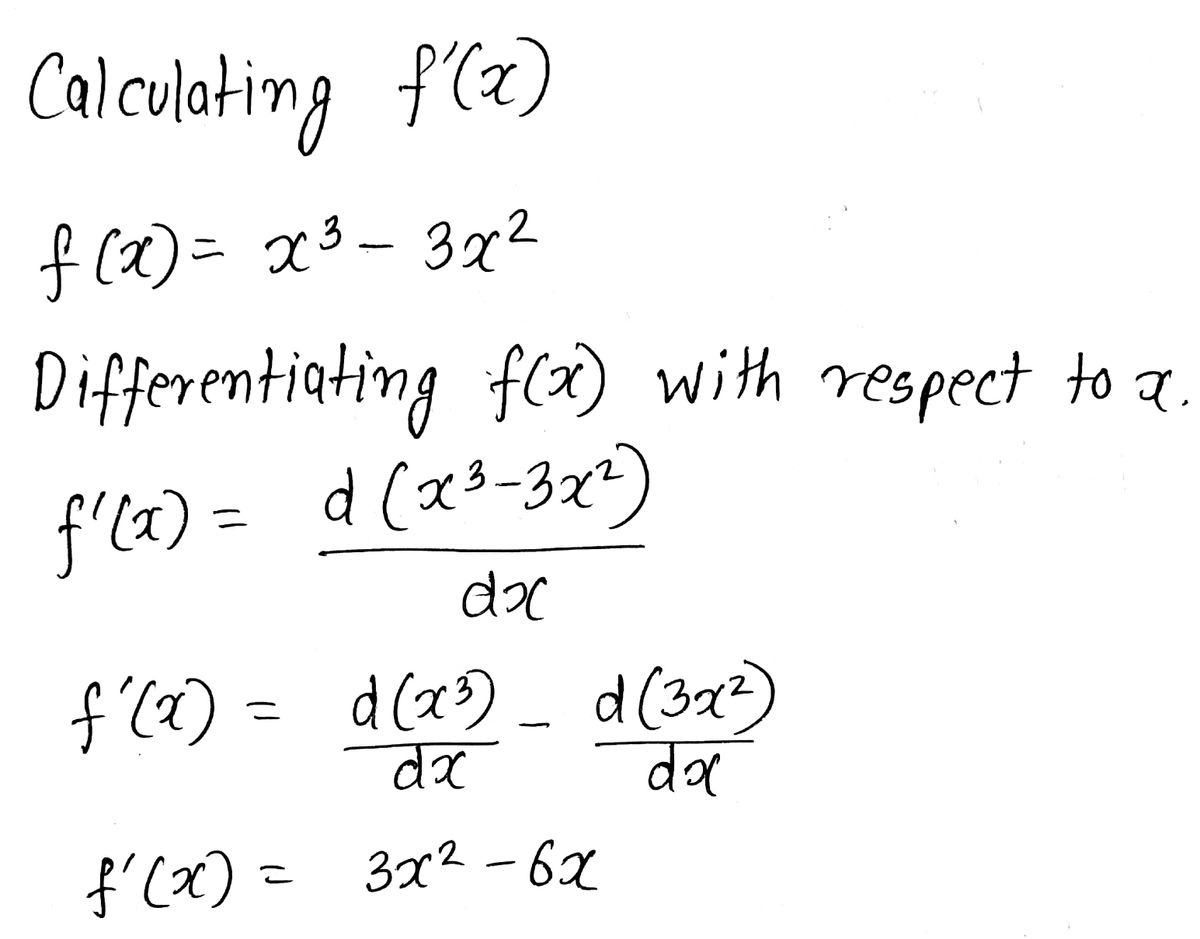 Calculating f'(x)
f(x) = x³ - 3x²
Differentiating f(x) with respect to x.
f'(x) = d(x³-3x²)
dx
f'(x) = d(x³) - d(3x²)
dx dx
f'(x) = 3x² - 6x